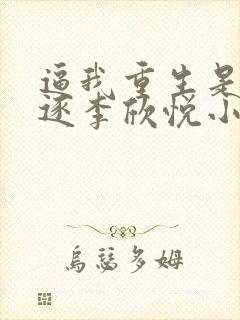 逼我重生是
逐李欣悦小
乌瑟多姆